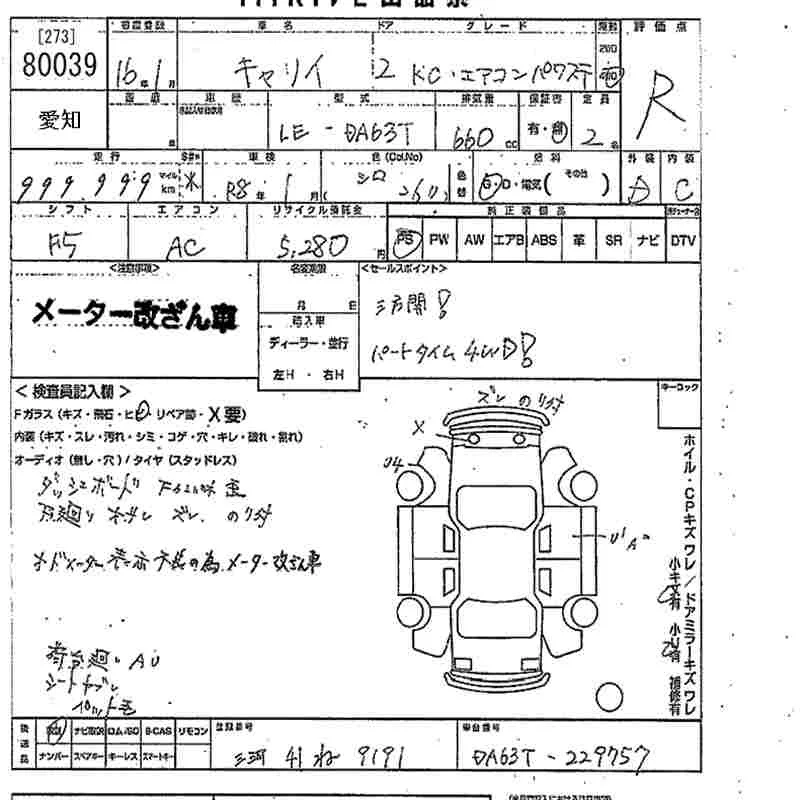 [273]
80039
愛知
初度登録
車名
ドア
グレード
評価点
16年1月
キャリイ
2
KC・エアコン パワステ
R
車歴
型式
排気量
保証書
定員
LE-DA63T
660cc
有・無
2名
走行
車検
色(Col.No)
燃料
外装
内装
999,999
マイル
km
R8年1月
シロ
26U
色替
G・D・電気(その他)
D
C
シフト
エアコン
リサイクル預託金
純正装備品
F5
AC
5,280円
PS
PW
AW
エアB
ABS
革
SR
ナビ
DTV
<注意事項>
名変期限
<セールスポイント>
メーター改ざん車
月 日
輸入車
ディーラー・並行
左H・右H
三方開!
パートタイム 4WD!
<検査員記入欄>
キーロック
Fガラス(キズ・飛石・ヒビ・リペア跡・X要)
内装(キズ・スレ・汚れ・シミ・コゲ・穴・キレ・破れ・割れ)
オーディオ(無し・穴)/タイヤ(スタッドレス)
ズレ のり付
X
U4
U1
ホイル・CPキズワレ/ドアミラーキズワレ
小キズ有 小U有 補修有
オドメーター表示不良の為、メーター改ざん車
荷台廻り AU
後送品
取説
ナビ取説
ロム/SD
B-CAS
リモコン
ナンバー
スペアキー
キーレス
スマートキー
登録番号
三河 41 ね 9191
車台番号
DA63T-229757